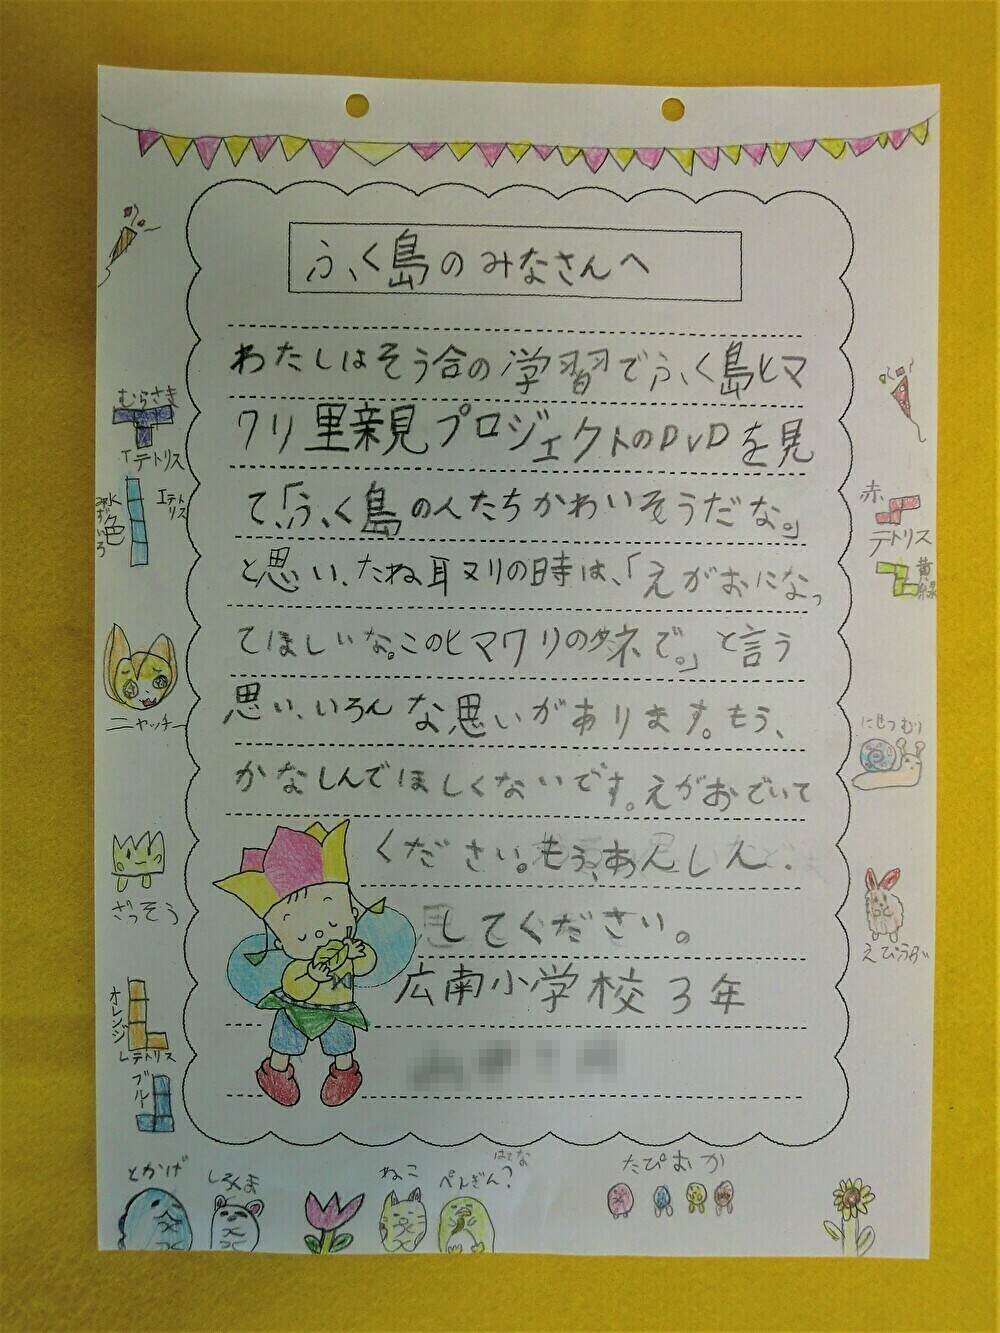 ふく島のみなさんへ
わたしはそう合の学習でふく島ヒマ
ワリ里親見プロジェクトのDVDを見
て、「ふく島の人たちかわいそうだな。」
と思い、たね耳又りの時は、「えがおになっ
てほしいな。このヒマワリのタネで。」と言う
思い、いろんな思いがあります。もう、
かなしんでほしくないです。えがおでいて
ください。もう、あんしん
してください。
広南小学校3年
むらさき
Tテトリス
水色
みずいろ
Iテトリス
ニャッチー
ざっそう
オレンジ
Lテトリス
ブルー
赤
テトリス
黄緑
にせつむり
えびうさ
とかげ
しろくま
ねこ
ぺんぎん?
はてな
たぴおか